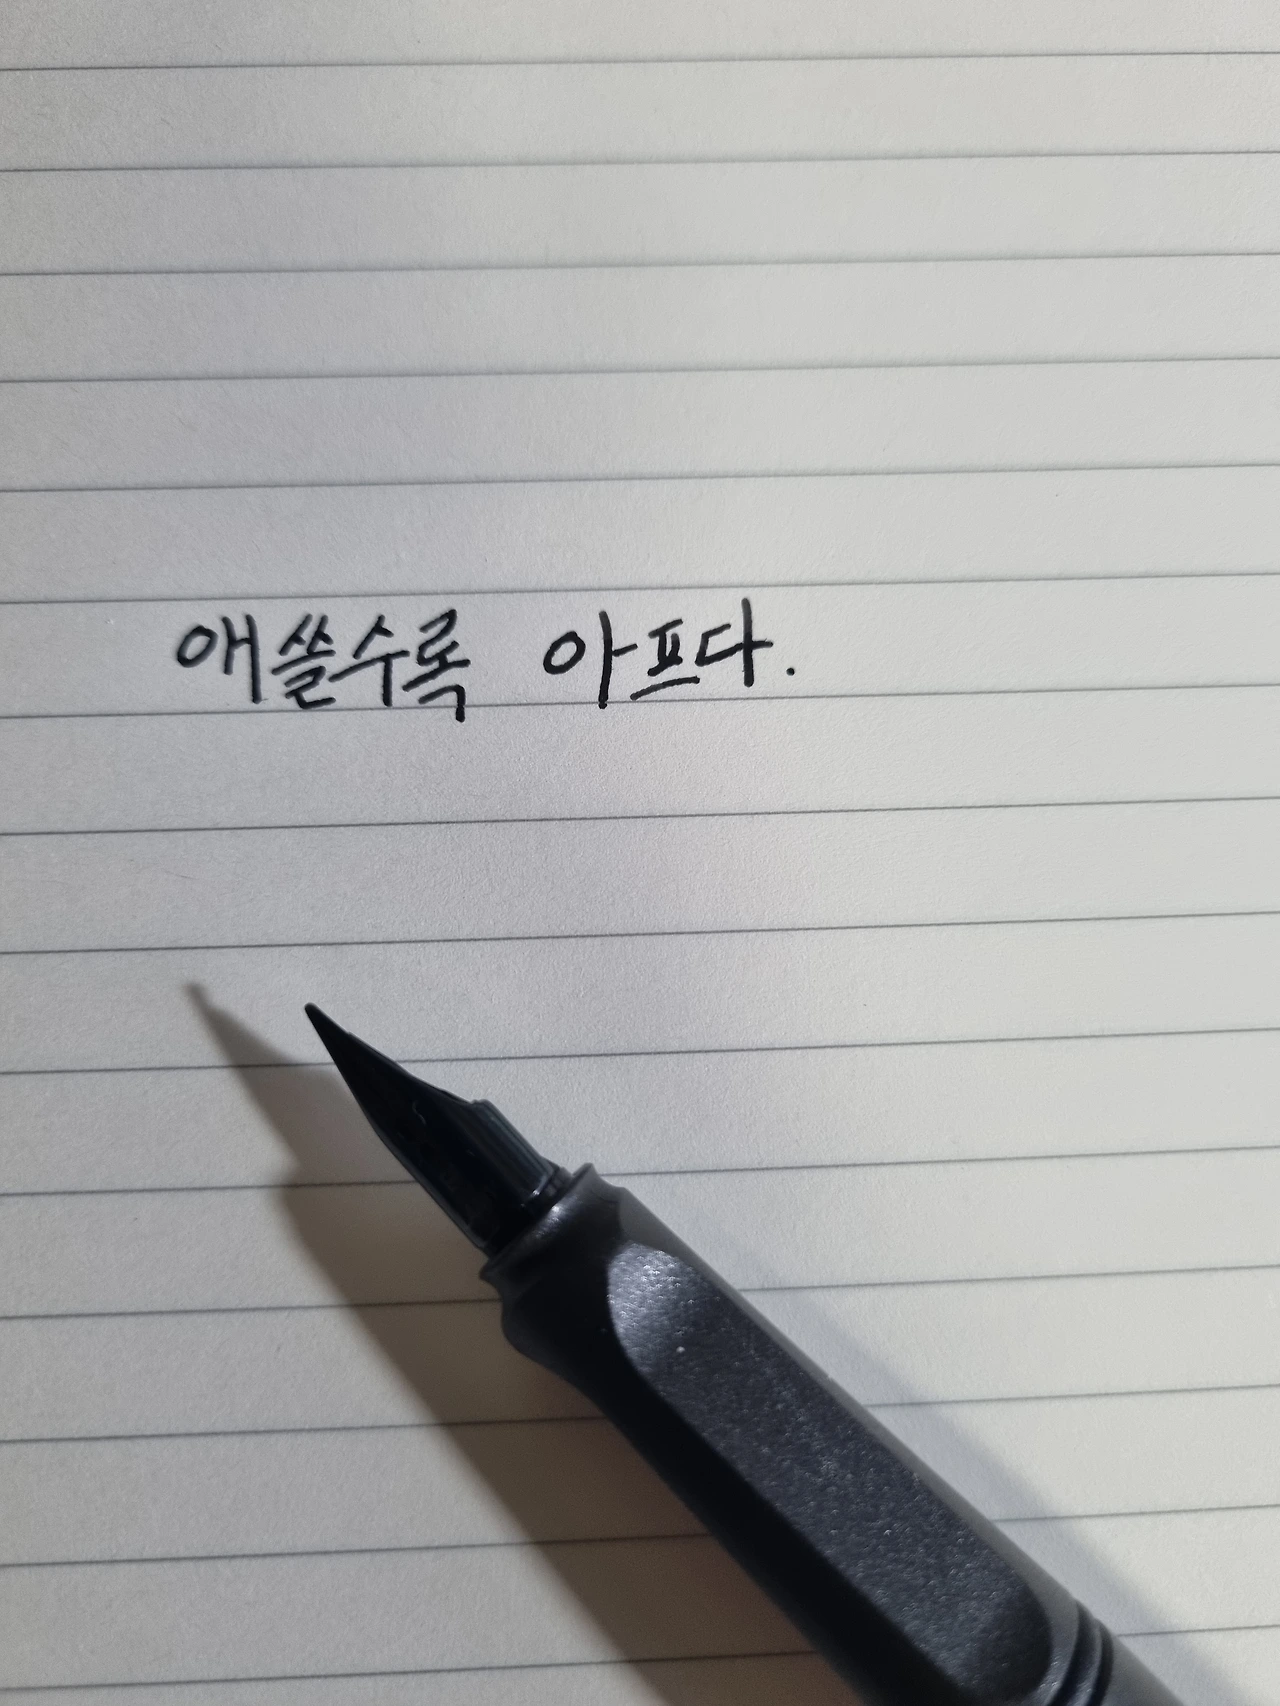 애쓸수록 아프다.